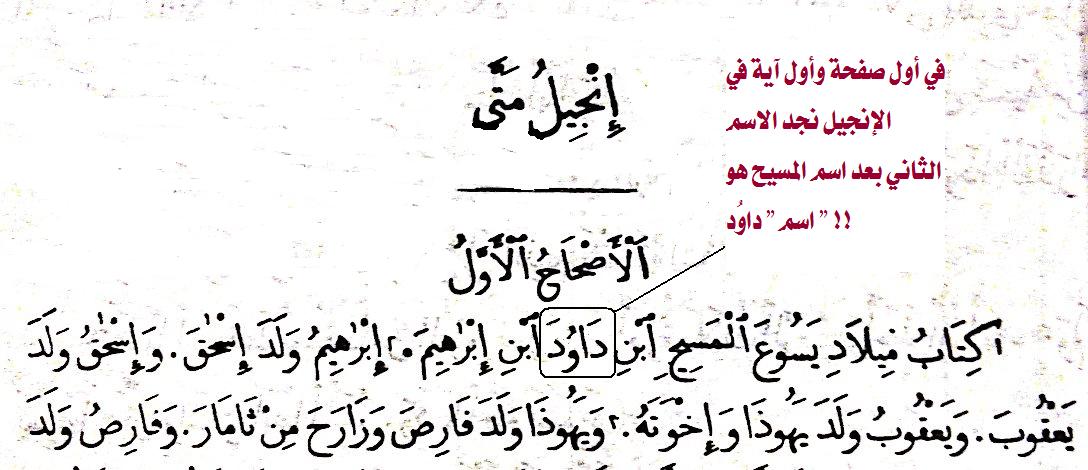 إِنْجِيلُ مَتَّى
في أول صفحة وأول آية في
الإنجيل نجد الاسم
الثاني بعد اسم المسيح هو
!! ” اسم ” داوُد
اَلْأَصْحَاحُ الْأَوَّلُ
١كِتَابُ مِيلَادِ يَسُوعَ الْمَسِيحِ ابْنِ دَاوُدَ ابْنِ إِبْرٰهِيمَ. ٢إِبْرٰهِيمُ وَلَدَ إِسْحٰقَ. وَإِسْحٰقُ وَلَدَ
يَعْقُوبَ. وَيَعْقُوبُ وَلَدَ يَهُوذَا وَإِخْوَتَهُ. ٣وَيَهُوذَا وَلَدَ فَارِصَ وَزَارَحَ مِنْ ثَامَارَ. وَفَارِصُ وَلَدَ